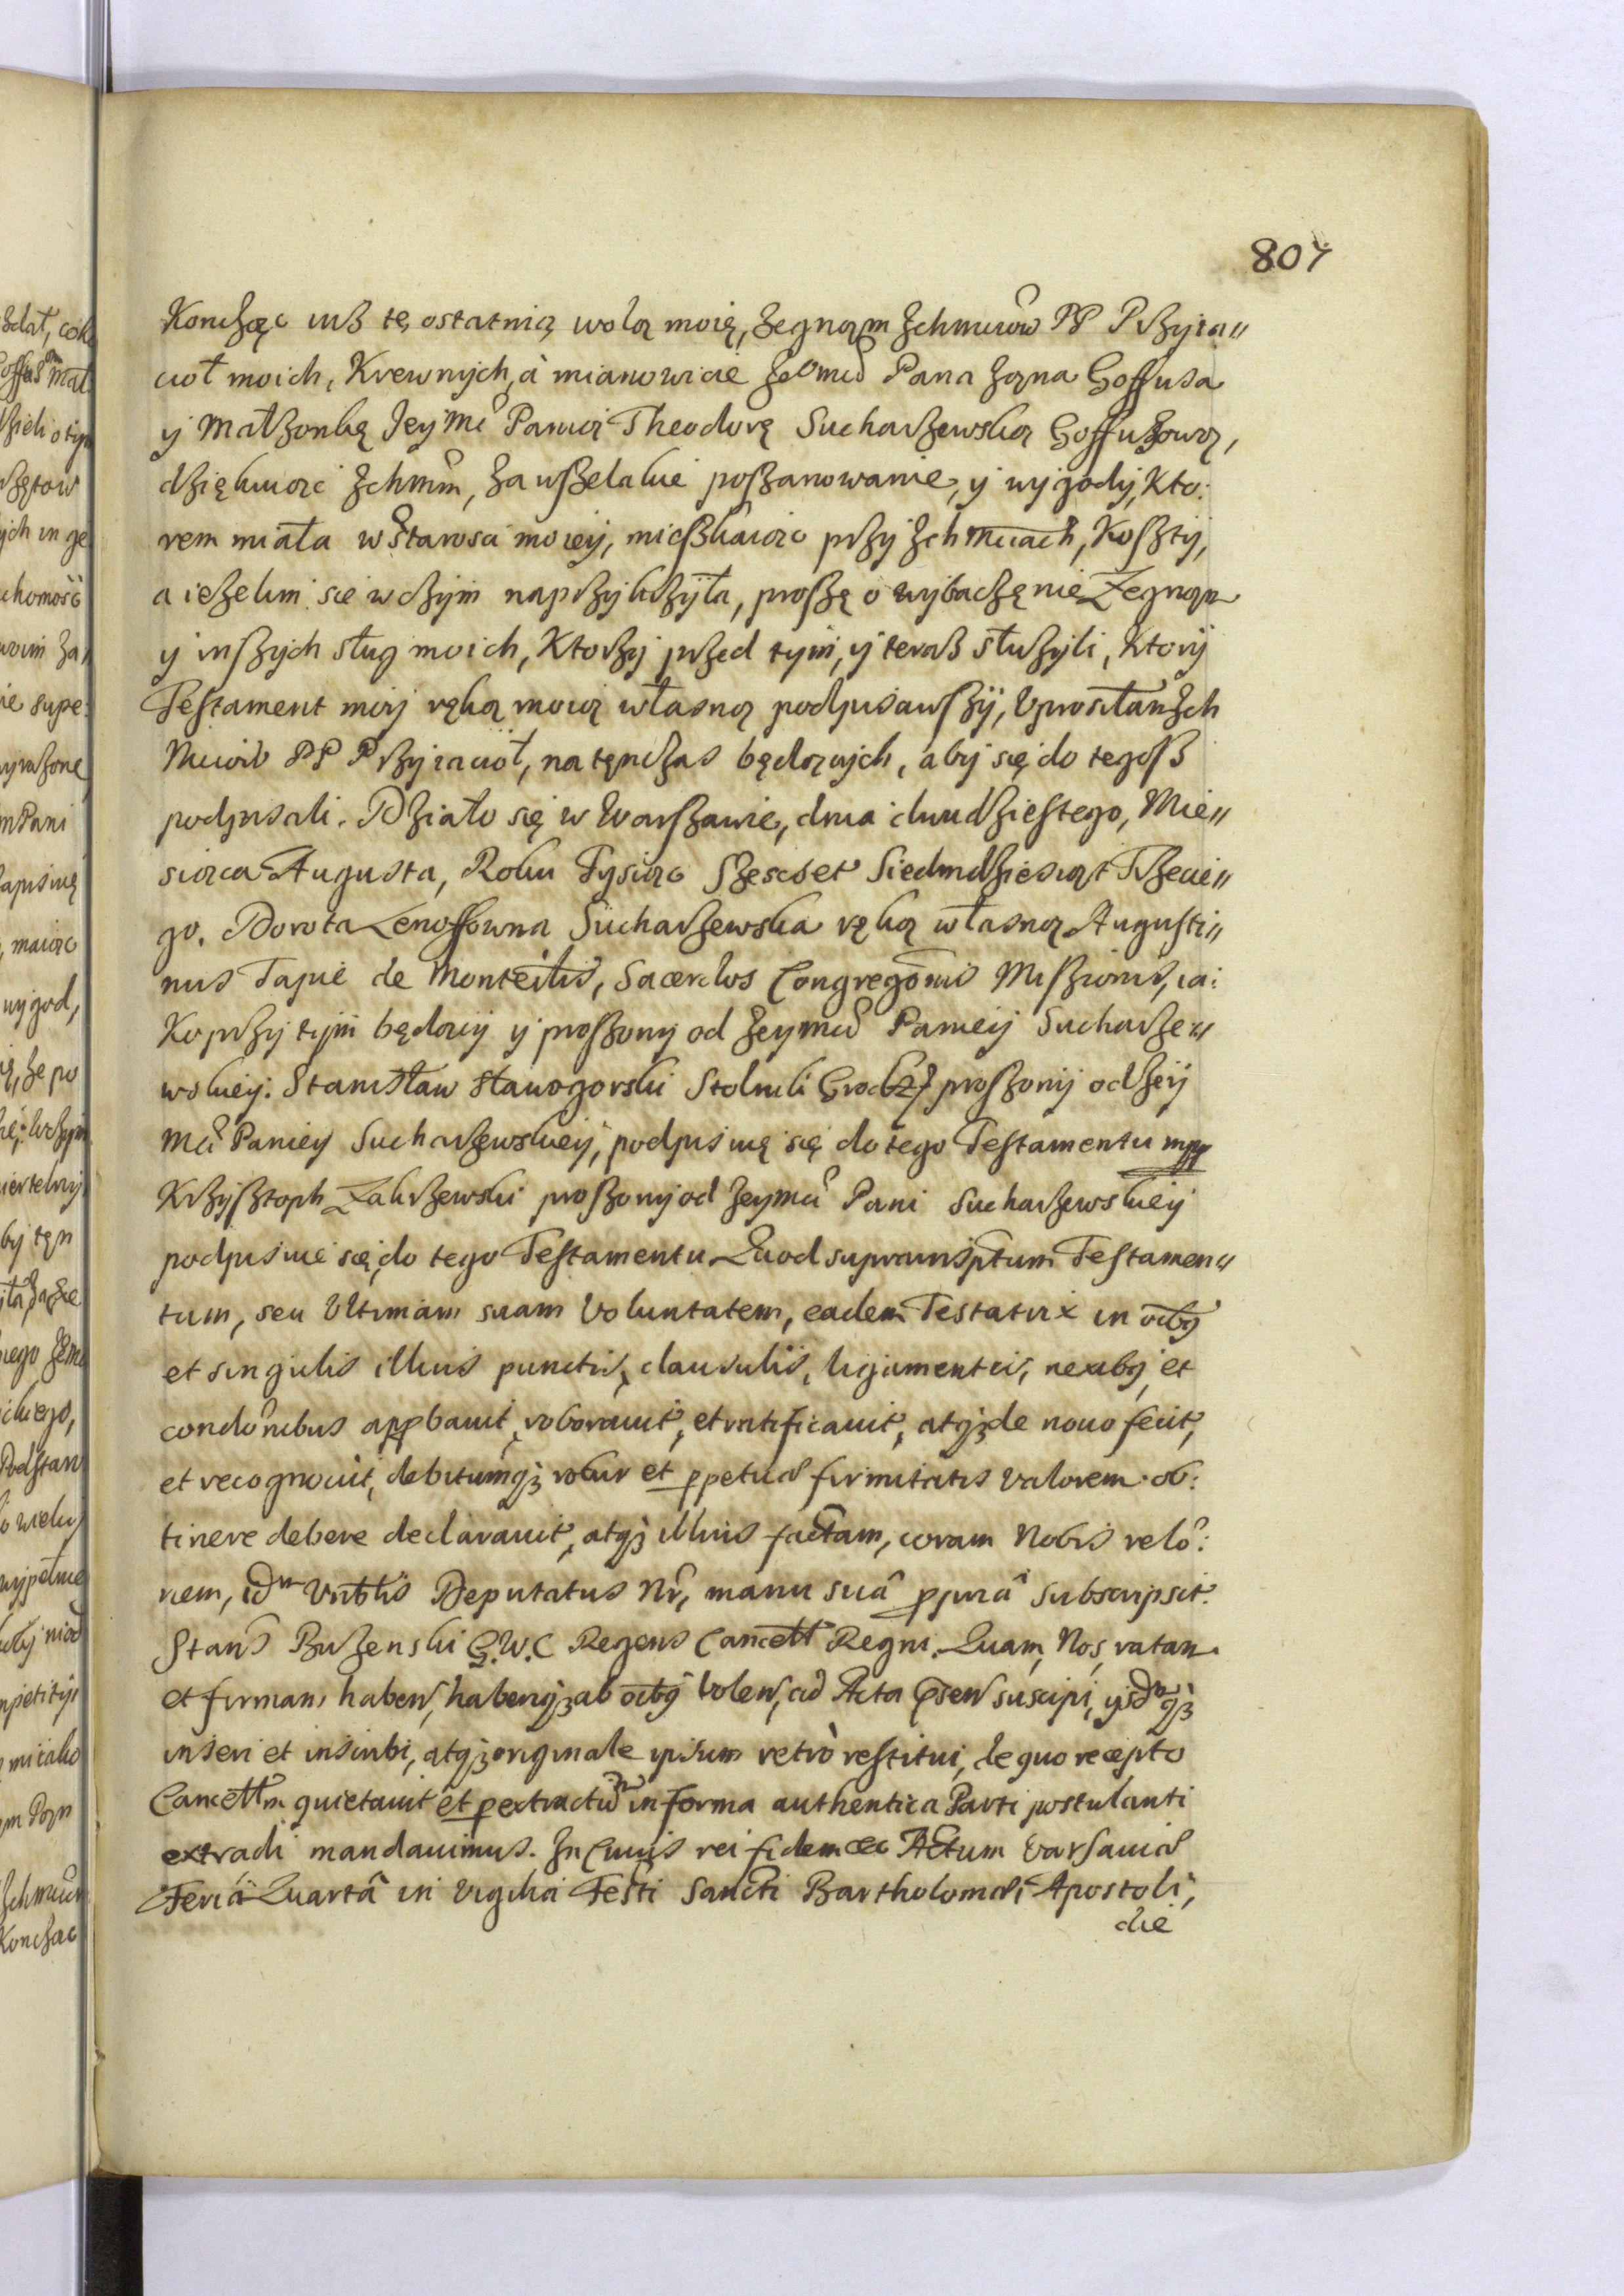 807
Kończąc iuß tę ostatnią wolą moię, żegnąm Ichmciow PP Przyia„
cioł moich, Krewnych, à mianowicie Je͠o mci Pana Jąna Goffusa
y Małżonkę Jey Mci Panią Theodorę Sucharzewską Goffużową,
dziękuiąc Ichmm, za wszelakie poszanowanie, y wygody, Kto:
rem miała w Starosci moiey, mieszkaiąc przy Ich Mciach, Koszty,
a ieżelim sie w czym naprzykrzyła, proszę o wybaczęnie Żegnąm
y inszych sług moich, Ktorzy przed tym, y teraß służyli, Ktory
Testament moy ręką moią własną podpisawszy, Uprosiłam Ich
Mciow PP Przyiacioł, na tęnczas będących, aby się do tegoß
podpisali. Działo się w Warszawie, dnia dwudziestego, Mie„
siąca Augusta, Roku Tysiąc Szescset Siedmdziesiąt Trzecie„
go. Dorota Lenoffowna Sucharzewska ręką własną Augusti„
nus Tapie de Monteilis, Sacerdos Congregōnis Missionis, ia:
Ko przy tym będący y proszony od Jeymci Paniey Sucharze„
wskiey. Stanisław Sławogorski Stolnik Grodzz proszony od Jey
Mci Paniey Sucharzewskiey, podpisuię się do tego Testamentu mpp
Krzysztoph Zakrzewski proszony od Jeymci Pani Sucharzewskiey
podpisuie się do tego Testamentu Quod suprainsptum Testamen„
tum, seu Ultimam suam Voluntatem, eadem Testatrix in oībꝯ
et singulis illius punctis, clausulis, ligamentis, nexibꝯ, et
condōnibus appbauit, roborauit, et ratificauit, atqꝫ de nouo fecit,
et recognouit, debitumqꝫ robur et ꝑpetuæ firmitatis valorem ob:
tinere debere declarauit, atqꝫ illius factam, coram Nobis relō:
nem, idm Vrīblis Deputatus Nr, manu suâ ꝓpriâ subscripsit.
Stans Bużenski G.W.C Regens Cancell Regni. Quam, Nos, ratam
et firmam haben, haberiqꝫ ab oībꝯ volen, ad Acta p̄sen suscipi, ysdmqꝫ
inseri et inscribi, atqꝫ originale ipsum retrò restitui, de quo recepto
Cancellm quietauit et ꝑ extractum in forma authentica Parti postulanti
extradi mandauimus. In Cuius rei fidem &c Actum Varsauiæ
Feriâ Quartâ in Vigilia Festi Sancti Bartholomæi Apostoli,
die